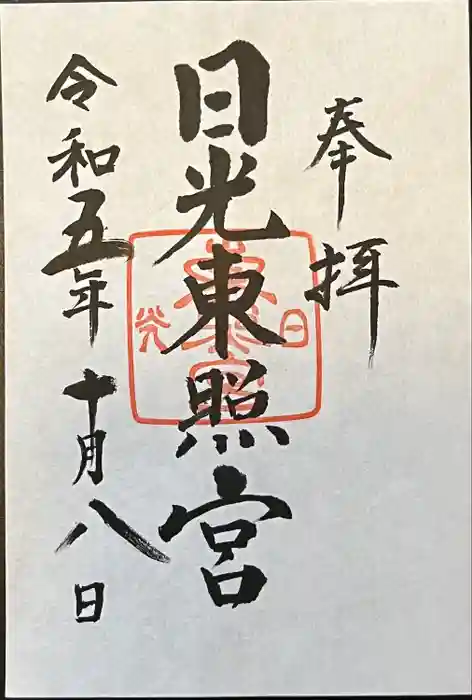 奉拝
日光東照宮
令和五年十月八日
日
光